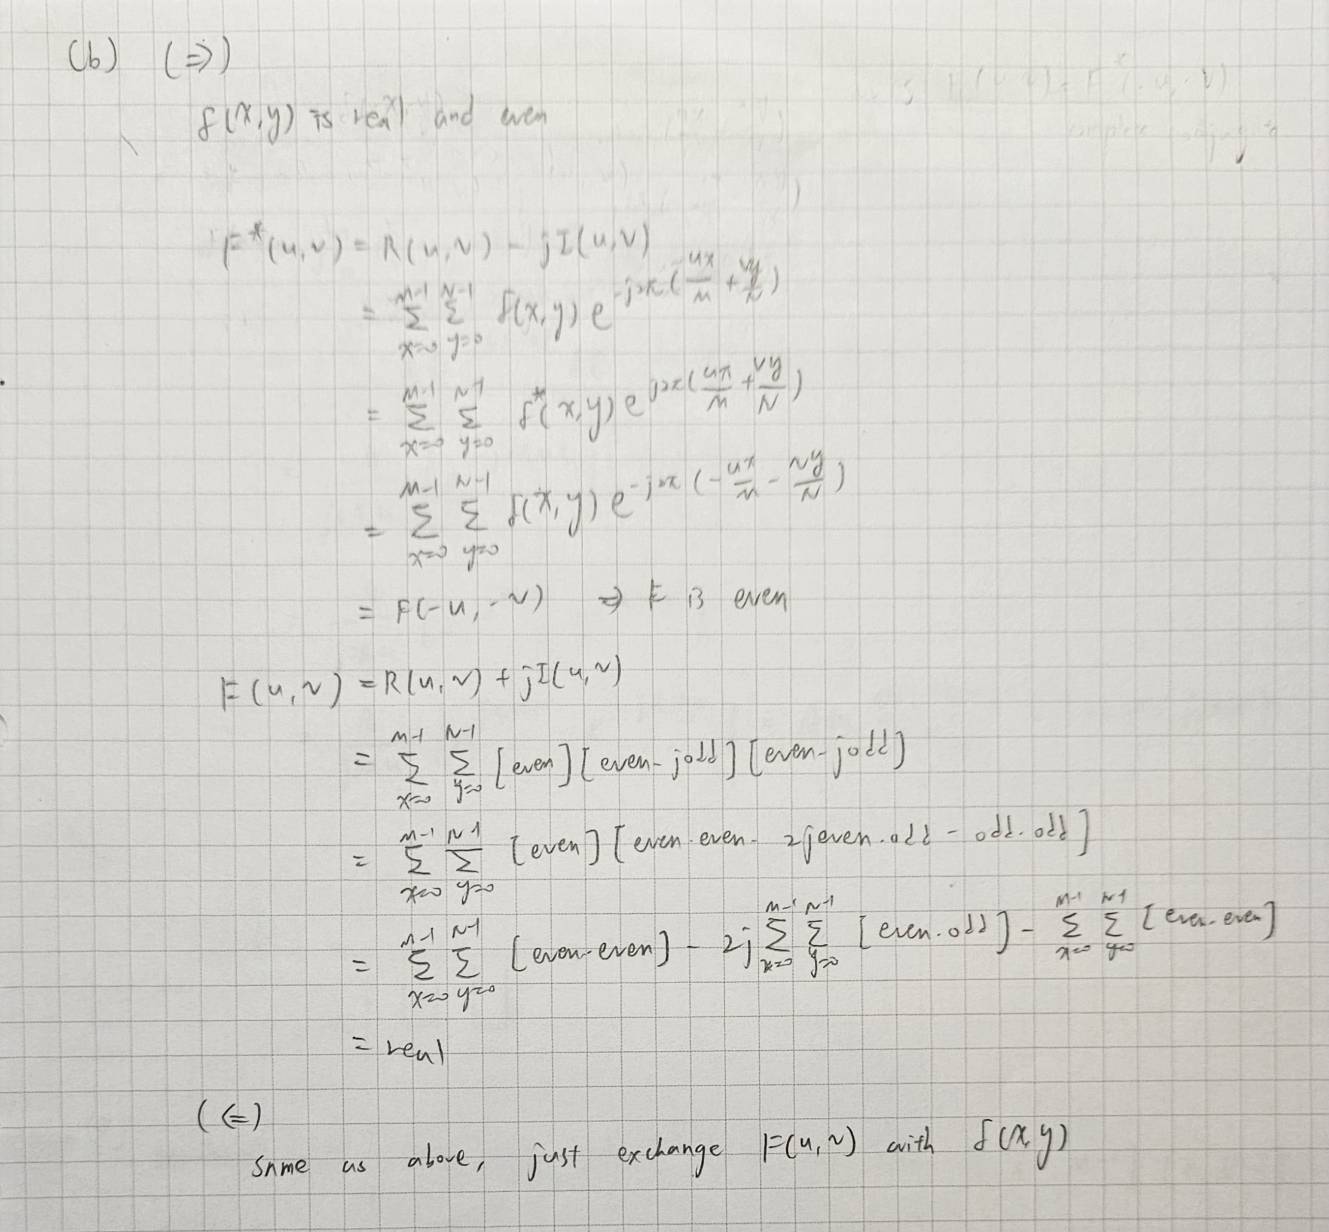 (b) (⇒)
f(x,y) is real and even
F*(u,v) = R(u,v) - jI(u,v)
= Σ_{x=0}^{M-1} Σ_{y=0}^{N-1} f(x,y) e^{-j2π(ux/M + vy/N)}
= Σ_{x=0}^{M-1} Σ_{y=0}^{N-1} f*(x,y) e^{j2π(ux/M + vy/N)}
= Σ_{x=0}^{M-1} Σ_{y=0}^{N-1} f(x,y) e^{-j2π(-ux/M - vy/N)}
= F(-u,-v) ⇒ F is even
F(u,v) = R(u,v) + jI(u,v)
= Σ_{x=0}^{M-1} Σ_{y=0}^{N-1} [even][even-jodd][even-jodd]
= Σ_{x=0}^{M-1} Σ_{y=0}^{N-1} [even][even·even - 2jeven·odd - odd·odd]
= Σ_{x=0}^{M-1} Σ_{y=0}^{N-1} [even·even] - 2j Σ_{x=0}^{M-1} Σ_{y=0}^{N-1} [even·odd] - Σ_{x=0}^{M-1} Σ_{y=0}^{N-1} [even·even]
= real
(⇐)
same as above, just exchange F(u,v) with f(x,y)